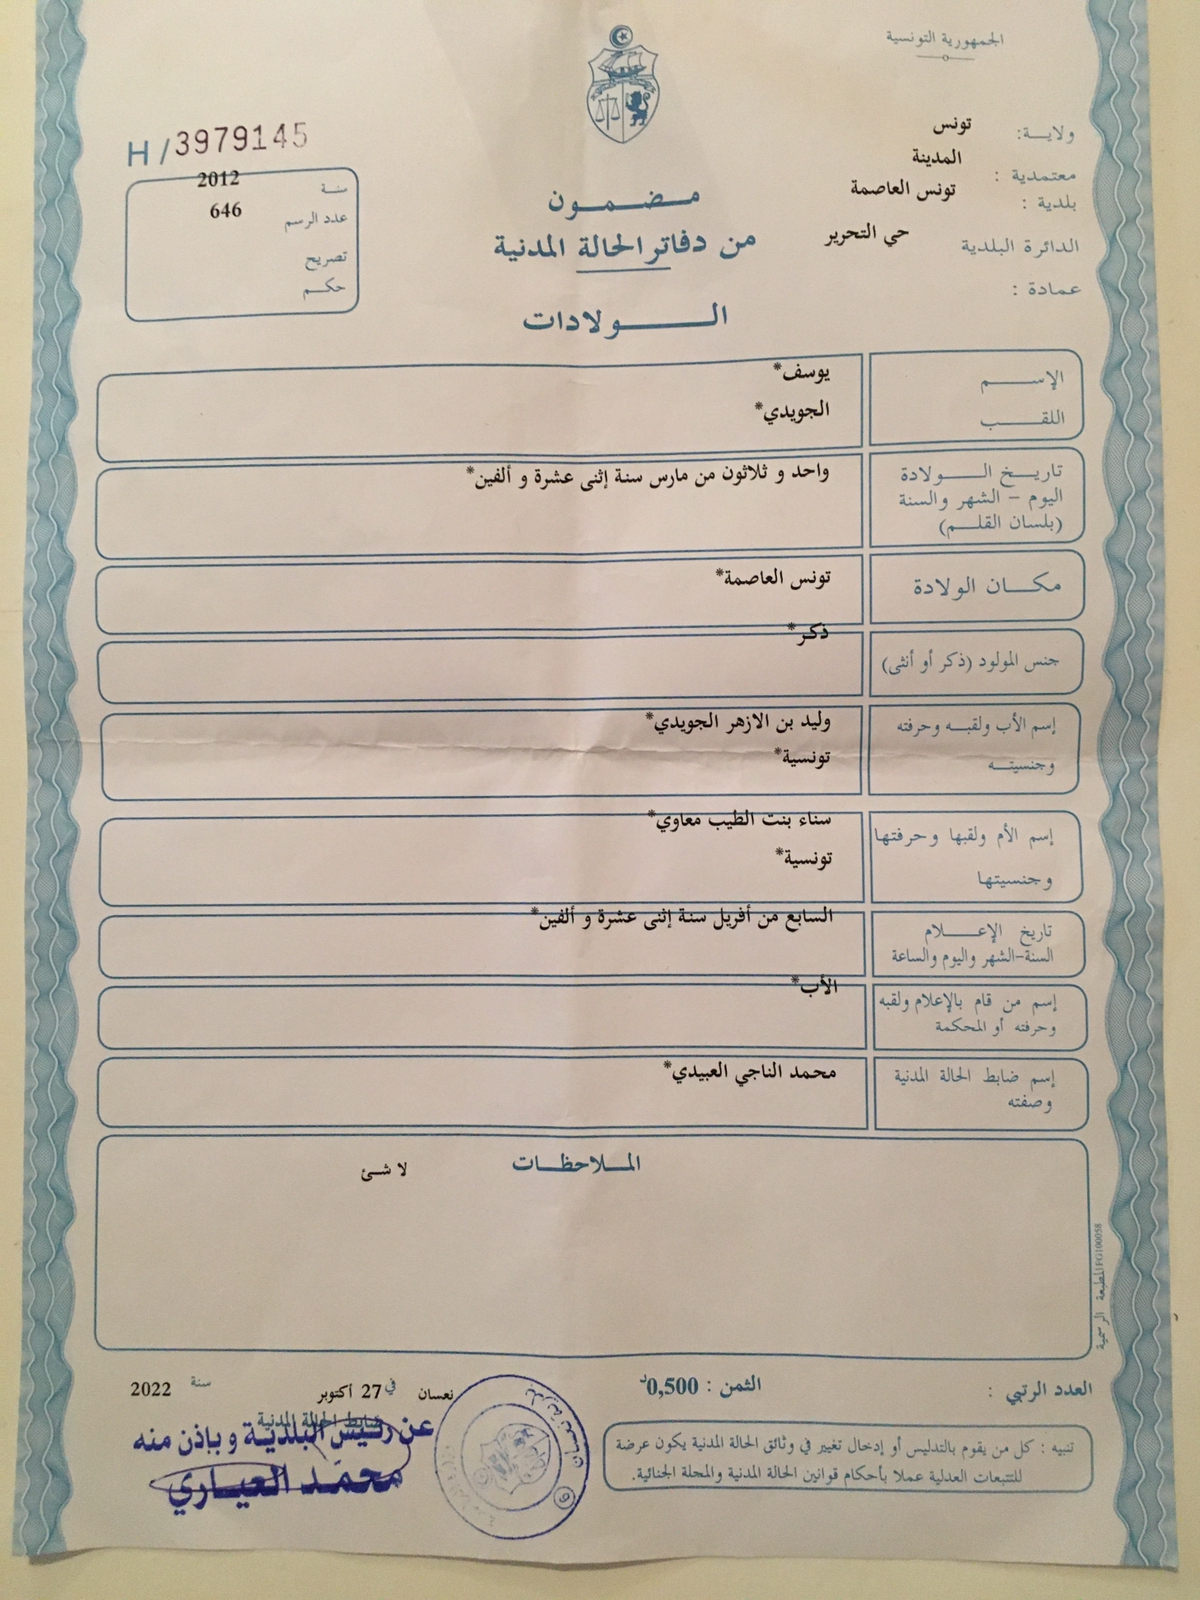 الجمهورية التونسية
ولاية: تونس
معتمدية : المدينة
بلدية : تونس العاصمة
الدائرة البلدية حي التحرير
عمادة :
H/3979145
سنة 2012
عدد الرسم 646
تصريح
حكم
مضمون
من دفاتر الحالة المدنية
الولادات
الإسم يوسف*
اللقب الجويدي*
تاريخ الولادة واحد و ثلاثون من مارس سنة إثنى عشرة و ألفين*
اليوم - الشهر والسنة
(بلسان القلم)
مكان الولادة تونس العاصمة*
جنس المولود (ذكر أو أنثى) ذكر*
إسم الأب ولقبه وحرفته وليد بن الازهر الجويدي*
وجنسيته تونسية*
إسم الأم ولقبها وحرفتها سناء بنت الطيب معاوي*
وجنسيتها تونسية*
تاريخ الإعلام السابع من أفريل سنة إثنى عشرة و ألفين*
السنة-الشهر واليوم والساعة
إسم من قام بالإعلام ولقبه الأب*
وحرفته أو المحكمة
إسم ضابط الحالة المدنية محمد الناجي العبيدي*
وصفته
الملاحظات لا شئ
المطبعة الرسمية FG100058
العدد الرتبي : الثمن : 0,500د
نعسان في 27 أكتوبر سنة 2022
ضابط الحالة المدنية
عن رئيس البلدية و بإذن منه
محمد العياري
بلدية نعسان
تنبيه : كل من يقوم بالتدليس أو إدخال تغيير في وثائق الحالة المدنية يكون عرضة
للتتبعات العدلية عملا بأحكام قوانين الحالة المدنية والمجلة الجنائية.